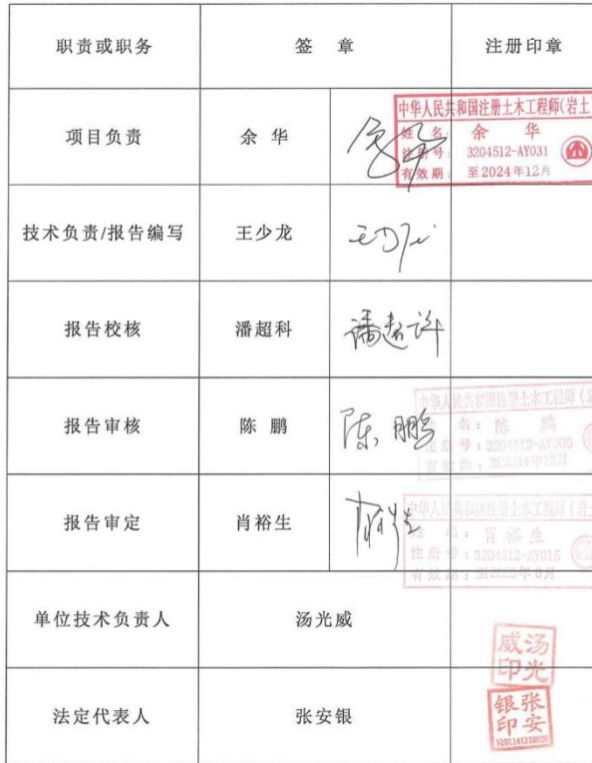 职责或职务 签 章 注册印章
中华人民共和国注册土木工程师(岩土)
姓 名: 余 华
注册号: 3204512-AY031
有效期: 至2024年12月
项目负责 余 华 余华
技术负责/报告编写 王少龙
报告校核 潘超科
报告审核 陈 鹏 陈鹏
中华人民共和国注册土木工程师(岩
姓 名: 陈 鹏
注册号: 3204512-AY005
有效期: 至2024年12月
报告审定 肖裕生 肖裕生
中华人民共和国注册土木工程师(岩土
姓 名: 肖裕生
注册号: 3204512-AY015
单位技术负责人 汤光威
汤光威印
法定代表人 张安银
张安银印